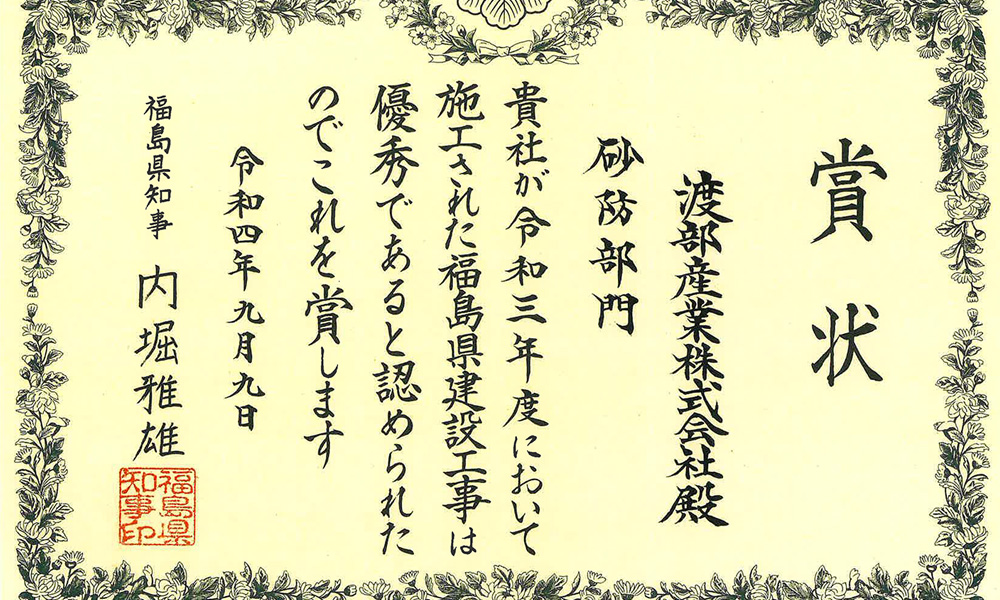 賞状
渡部産業株式会社殿
砂防部門
貴社が令和三年度において
施工された福島県建設工事は
優秀であると認められた
のでこれを賞します
令和四年九月九日
福島県知事 内堀雅雄
福島県
知事印